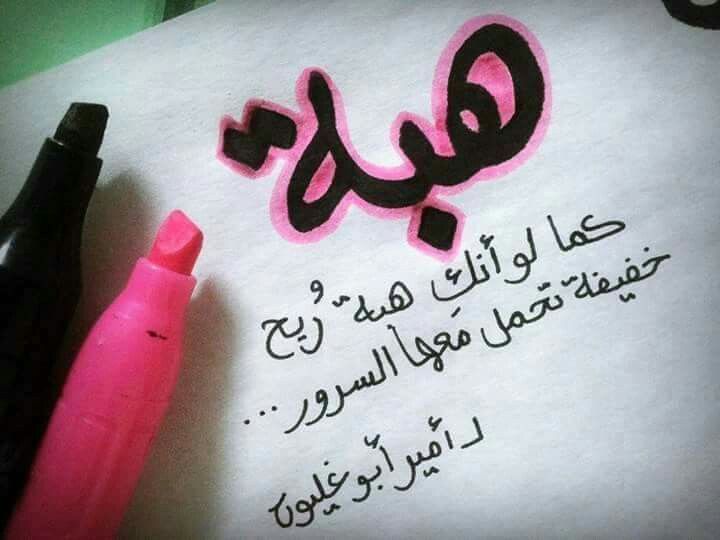 هبة
كما لو أنكِ هبة رُيح
خفيفة تحمل مَعها السرور ...
لـ أمير أبو غليون